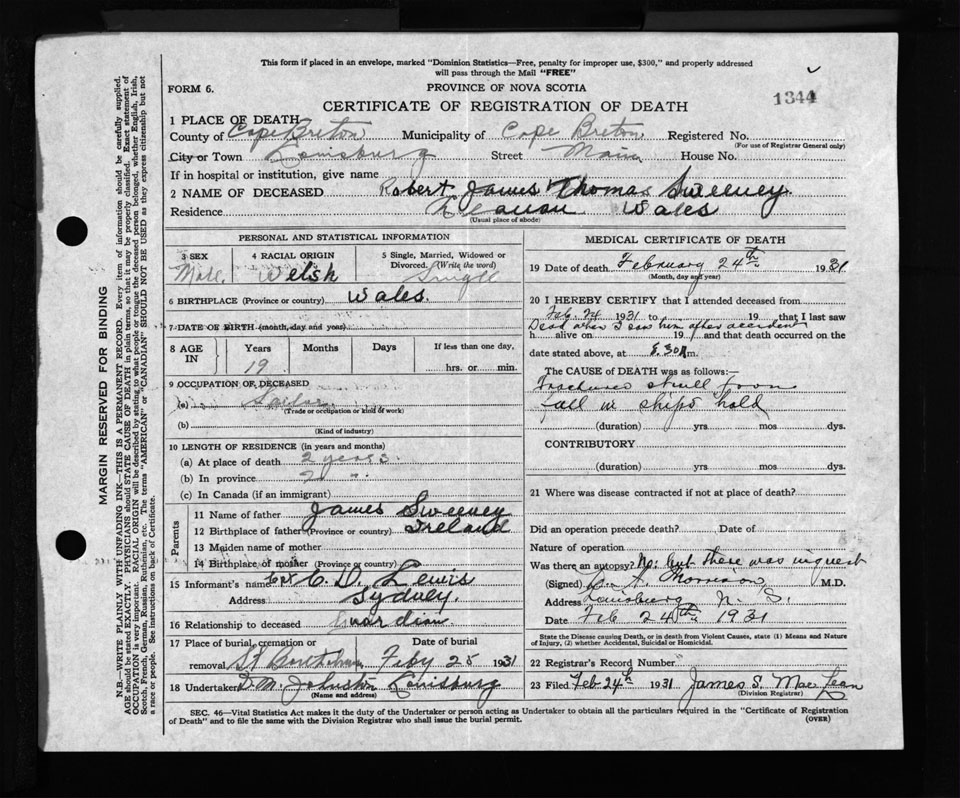 This form if placed in an envelope, marked "Dominion Statistics—Free, penalty for improper use, $300," and properly addressed
will pass through the Mail "FREE"
FORM 6.
PROVINCE OF NOVA SCOTIA
CERTIFICATE OF REGISTRATION OF DEATH
1344
1 PLACE OF DEATH
County of Cape Breton Municipality of Cape Breton Registered No.
(For use of Registrar General only)
City or Town Louisburg Street Main House No.
If in hospital or institution, give name
2 NAME OF DECEASED Robert James Thomas Sweeney
Residence Wales
(Usual place of abode)
PERSONAL AND STATISTICAL INFORMATION
3 SEX 4 RACIAL ORIGIN 5 Single, Married, Widowed or
Divorced. (Write the word)
Male Welsh Single
6 BIRTHPLACE (Province or country) Wales.
7 DATE OF BIRTH (month, day and year)
8 AGE IN Years Months Days If less than one day,
19 hrs. or min.
9 OCCUPATION OF DECEASED
(a) Sailor
(Trade or occupation or kind of work)
(b)
(Kind of industry)
10 LENGTH OF RESIDENCE (in years and months)
(a) At place of death 2 years.
(b) In province 2 "
(c) In Canada (if an immigrant)
Parents
11 Name of father James Sweeney
12 Birthplace of father (Province or country) Ireland
13 Maiden name of mother
14 Birthplace of mother (Province or country)
15 Informant's name Capt C. D. Lewis
Address Sydney.
16 Relationship to deceased Guardian
17 Place of burial, cremation or Date of burial
removal Feby 25 1931
18 Undertaker D. M. Johnston Louisburg
(Name and address)
MEDICAL CERTIFICATE OF DEATH
19 Date of death February 24th 1931
(Month, day and year)
20 I HEREBY CERTIFY that I attended deceased from
Feb. 24 1931 to 19 that I last saw
Dead when I saw him after accident
h alive on 19 and that death occurred on the
date stated above, at 8.30 m.
The CAUSE of DEATH was as follows:—
Fractured skull from
fall in ships hold
(duration) yrs mos dys.
CONTRIBUTORY
(duration) yrs mos dys.
21 Where was disease contracted if not at place of death?
Did an operation precede death? Date of
Nature of operation
Was there an autopsy? No: but there was inquest
(Signed) A. Morrison M.D.
Address Louisburg N. S.
Date Feb 24th 1931
State the Disease causing Death, or in death from Violent Causes, state (1) Means and Nature
of Injury, (2) whether Accidental, Suicidal or Homicidal.
22 Registrar's Record Number
23 Filed Feb 24th 1931 James S. MacLean
(Division Registrar)
SEC. 46—Vital Statistics Act makes it the duty of the Undertaker or person acting as Undertaker to obtain all the particulars required in the "Certificate of Registration
of Death" and to file the same with the Division Registrar who shall issue the burial permit.
(OVER)
MARGIN RESERVED FOR BINDING
N.B.—WRITE PLAINLY WITH UNFADING INK—THIS IS A PERMANENT RECORD. Every item of information should be carefully supplied.
AGE should be stated EXACTLY. PHYSICIANS should STATE CAUSE OF DEATH in plain terms, so that it may be properly classified. Exact statement of
OCCUPATION is very important. RACIAL ORIGIN will be described by stating to what people or tongue the deceased person belonged, whether English, Irish,
Scotch, French, German, Russian, Ruthenian, etc. The terms "AMERICAN" or "CANADIAN" SHOULD NOT BE USED as they express citizenship but not
a race or people. See instructions on back of Certificate.